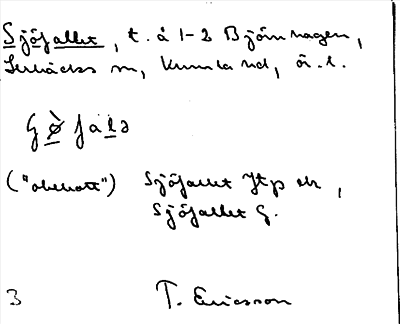 Sjöfallet, t. å 1-2 Björnhagen,
Lerbäcks sn, Kumla hd, ör. l.
("obekott") Sjöfallet Jtp ek,
Sjöfallet G.
3 T. Ericsson